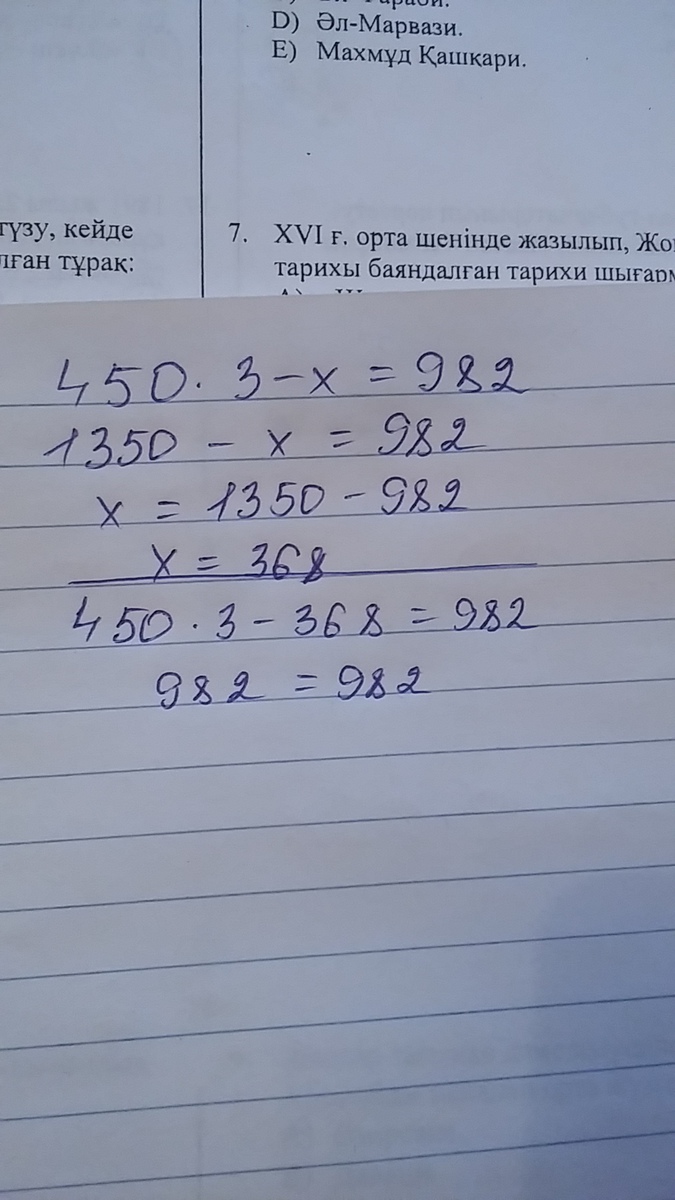 D) Әл-Марвази.
E) Махмұд Қашқари.
түзу, кейде
тұрақ:
7. XVI ғ. орта шенінде жазылып,
тарихы баяндалған тарихи
450 · 3 - x = 982
1350 - x = 982
x = 1350 - 982
x = 368
450 · 3 - 368 = 982
982 = 982